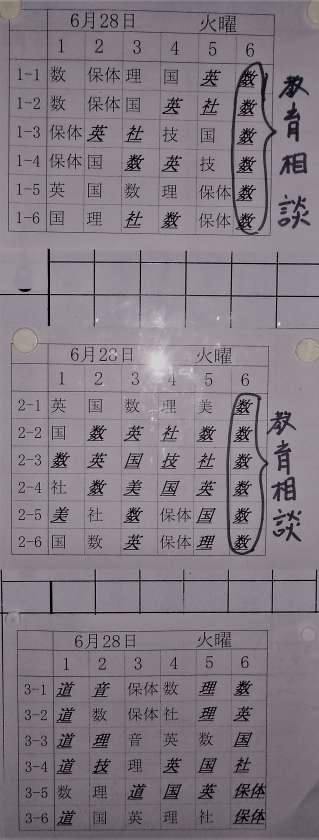 6月28日 火曜
1 2 3 4 5 6
1-1 数 保体 理 国 英 数
1-2 数 保体 国 英 社 数
1-3 保体 英 社 技 国 数
1-4 保体 国 数 英 技 数
1-5 英 国 数 理 保体 数
1-6 国 理 社 数 保体 数
教育相談
6月28日 火曜
1 2 3 4 5 6
2-1 英 国 数 理 美 数
2-2 国 数 英 社 数 数
2-3 数 英 国 技 社 数
2-4 社 数 美 国 英 数
2-5 美 社 数 保体 国 数
2-6 国 数 英 保体 理 数
教育相談
6月28日 火曜
1 2 3 4 5 6
3-1 道 音 保体 数 理 数
3-2 道 数 保体 社 理 英
3-3 道 理 音 英 数 国
3-4 道 技 理 英 国 社
3-5 数 理 道 国 英 保体
3-6 道 国 英 理 社 保体